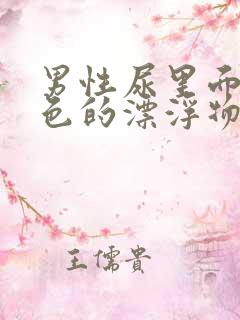 男性尿里面
色的漂浮物
王儒贵